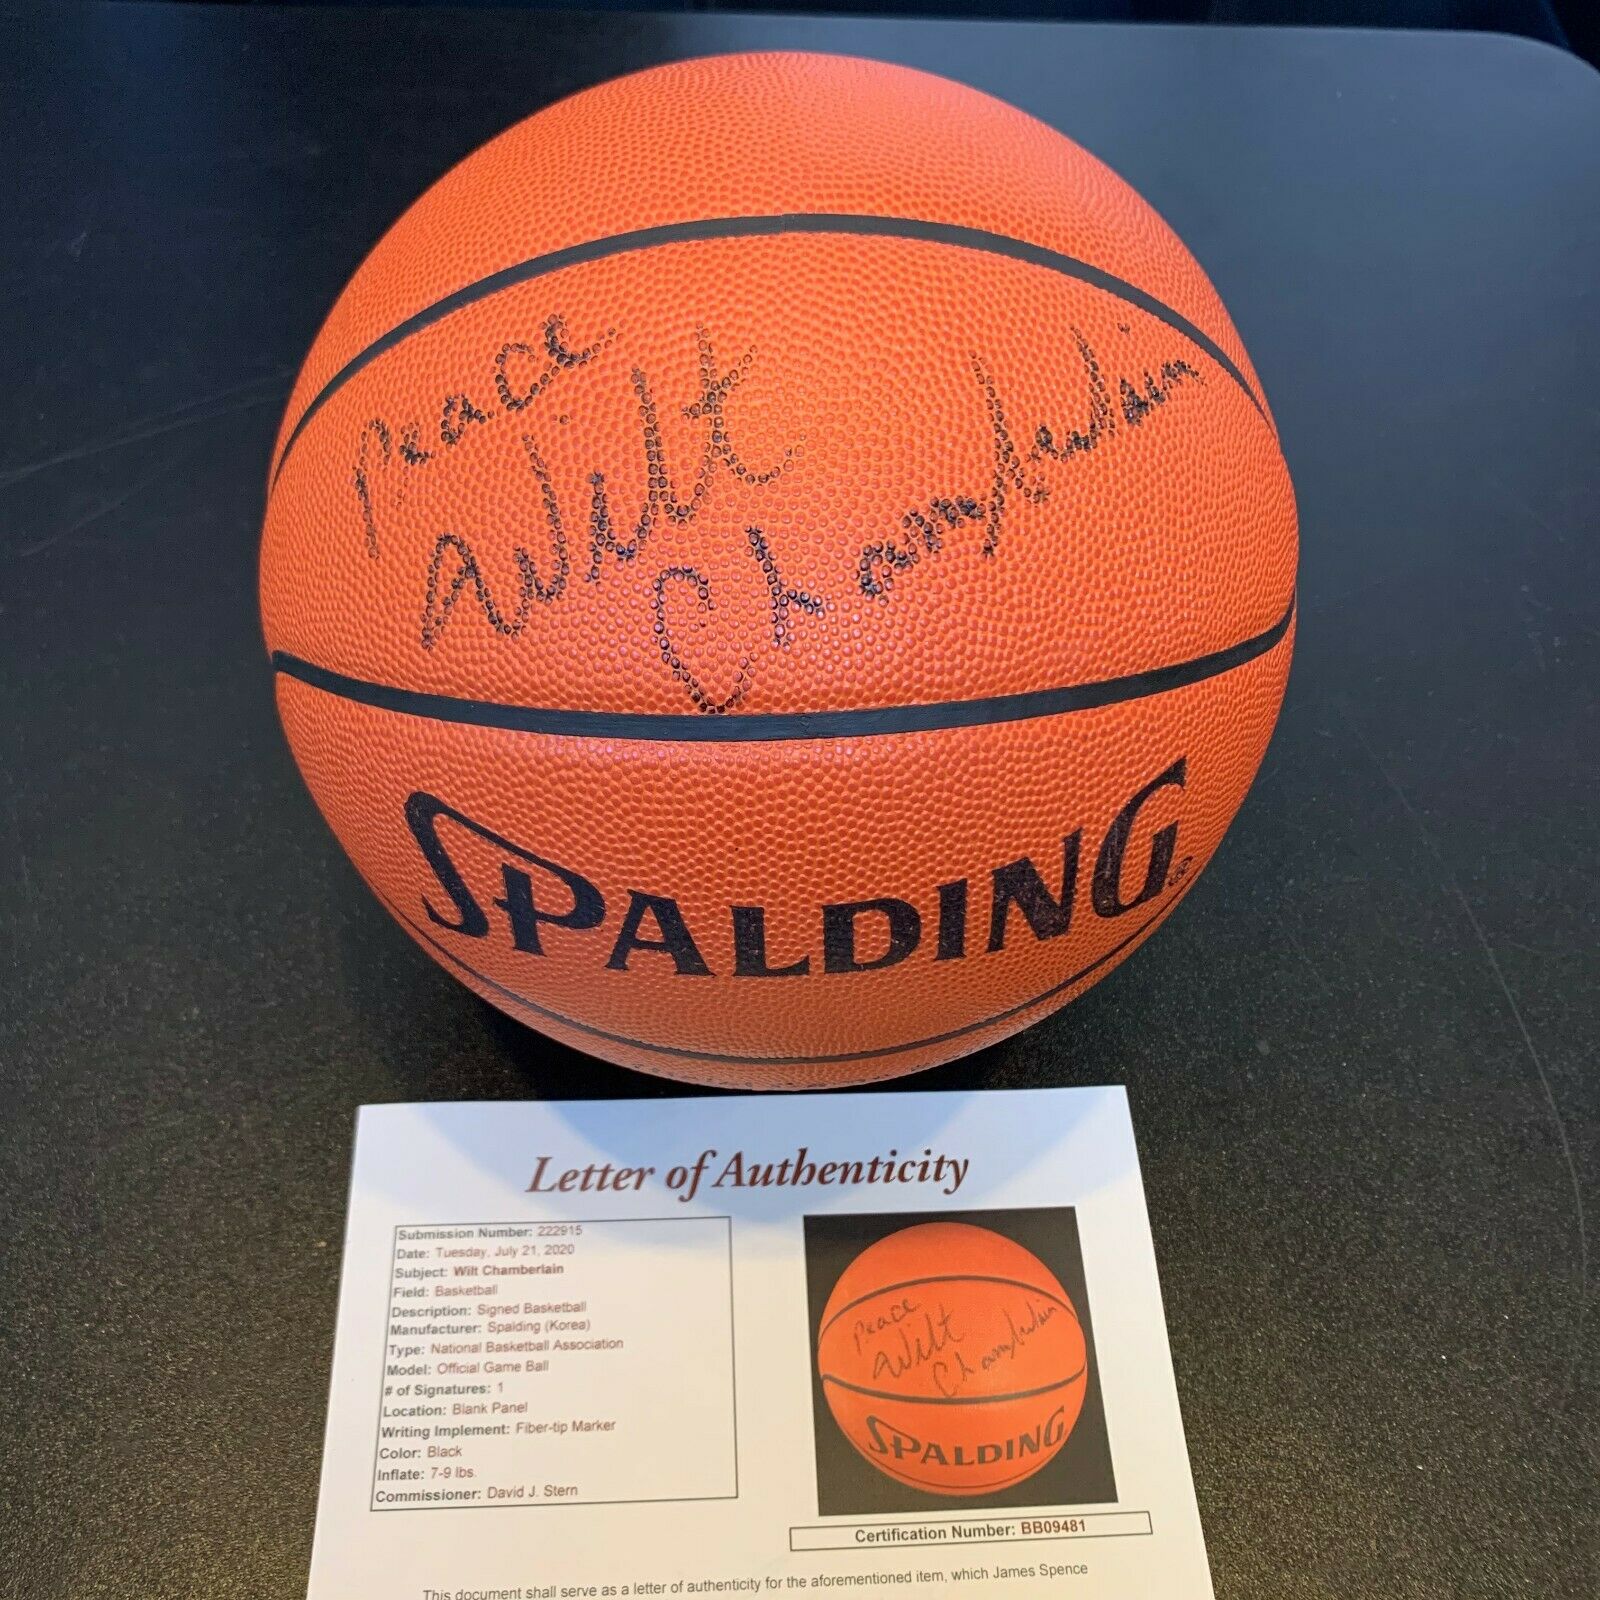 Peace
Wilt
Chamberlain
SPALDING®
Letter of Authenticity
Submission Number: 222915
Date: Tuesday, July 21, 2020
Subject: Wilt Chamberlain
Field: Basketball
Description: Signed Basketball
Manufacturer: Spalding (Korea)
Type: National Basketball Association
Model: Official Game Ball
# of Signatures: 1
Location: Blank Panel
Writing Implement: Fiber-tip Marker
Color: Black
Inflate: 7-9 lbs.
Commissioner: David J. Stern
Peace
Wilt
Chamberlain
SPALDING
Certification Number: BB09481
This document shall serve as a letter of authenticity for the aforementioned item, which James Spence